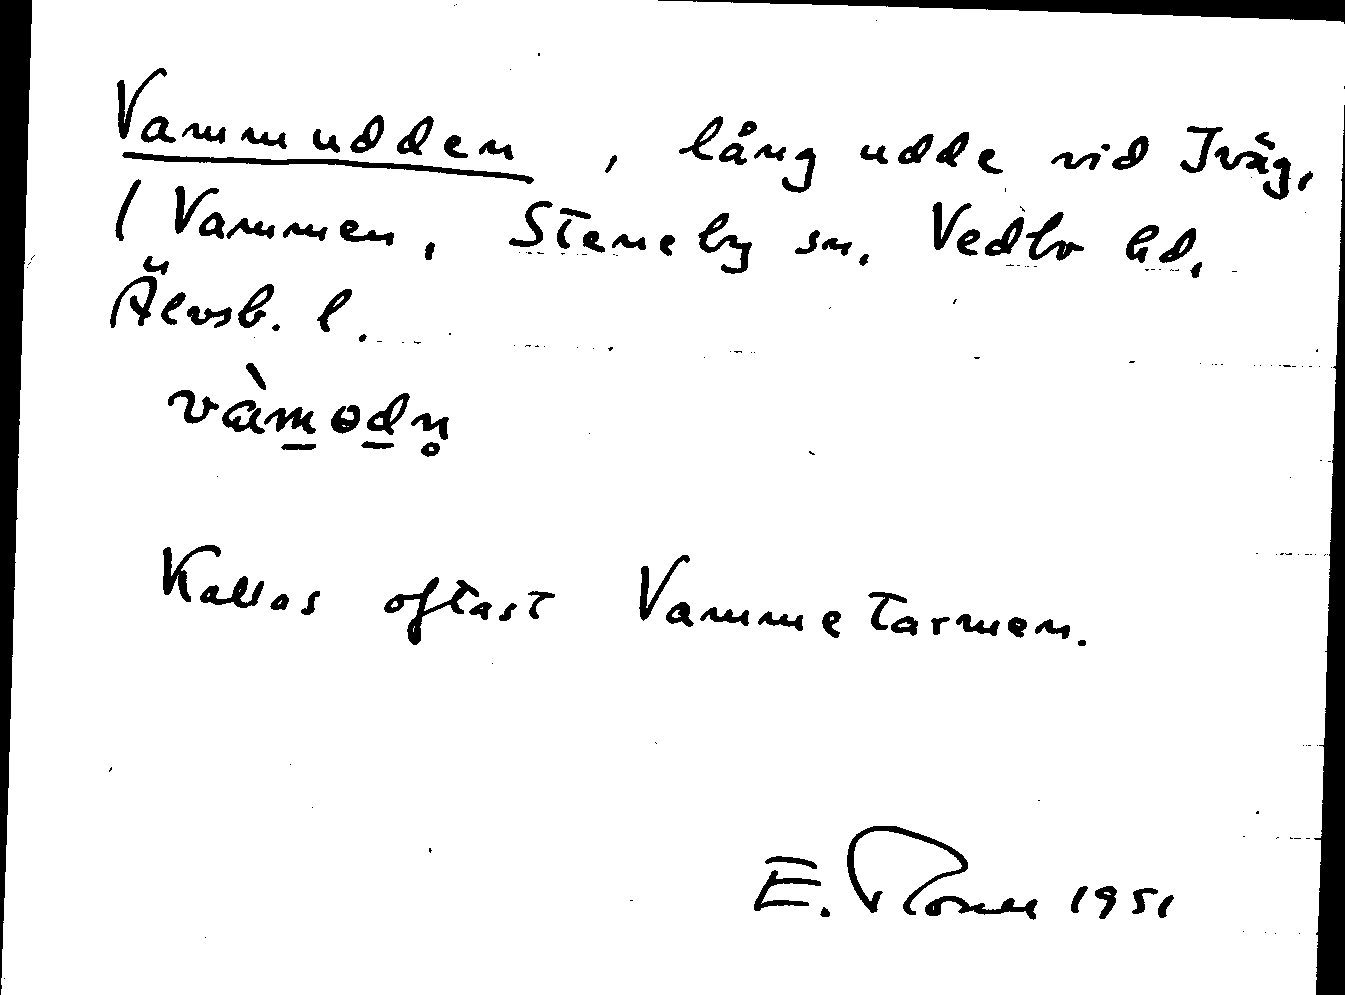 Vammudden, lång udde vid Iväg,
i Vammen, Steneby sn. Vedbo hd,
Älvsb. l.
vàm̲od̲n̥
Kallas oftast Vammetarmen.
E. 1951